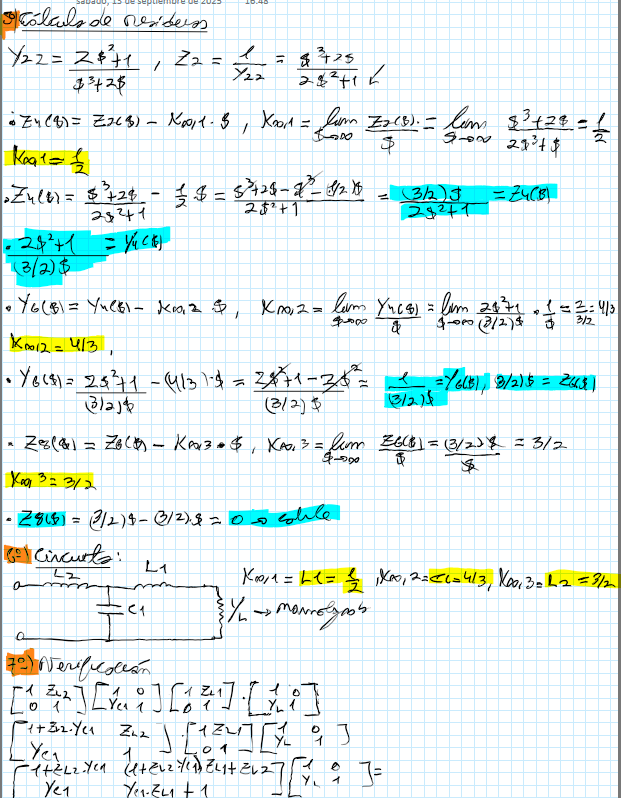 sábado, 13 de septiembre de 2025 16:48
5) Cálculo de residuos
Y22 = (2$²+1)/($³+2$) , Z2 = 1/Y22 = ($³+2$)/(2$²+1)
• Z4($) = Z2($) - K∞,1 · $ , K∞,1 = lim $→∞ Z2($)/$ = lim $→∞ ($³+2$)/(2$³+$) = 1/2
K∞,1 = 1/2
• Z4($) = ($³+2$)/(2$²+1) - 1/2 $ = ($³+2$-$³-(1/2)$)/(2$²+1) = (3/2)$/(2$²+1) = Z4($)
• (2$²+1)/((3/2)$) = Y4($)
• Y6($) = Y4($) - K∞,2 $, K∞,2 = lim $→∞ Y4($)/$ = lim $→∞ (2$²+1)/((3/2)$) · 1/$ = 2/(3/2) = 4/3
K∞,2 = 4/3 ,
• Y6($) = (2$²+1)/((3/2)$) - (4/3)·$ = (2$²+1-2$²)/((3/2)$) = 1/((3/2)$) = Y6($), (3/2)$ = Z6($)
• Z8($) = Z6($) - K∞,3 • $ , K∞,3 = lim $→∞ Z6($)/$ = (3/2)$/$ = 3/2
K∞,3 = 3/2
• Z8($) = (3/2)$ - (3/2).$ = 0 →
6º) Circuito:
L2 L1
C1
YL →
K∞,1 = L1 = 1/2 , K∞,2 = C1 = 4/3, K∞,3 = L2 = 3/2
7º) Verificación
[1 ZL2; 0 1] [1 0; YC1 1] [1 ZL1; 0 1] · [1 0; YL 1]
[1+ZL2·YC1 ZL2; YC1 1] · [1 ZL1; 0 1] [1 0; YL 1]
[1+ZL2·YC1 (1+ZL2·YC1)ZL1+ZL2; YC1 YC1·ZL1+1] [1 0; YL 1] =